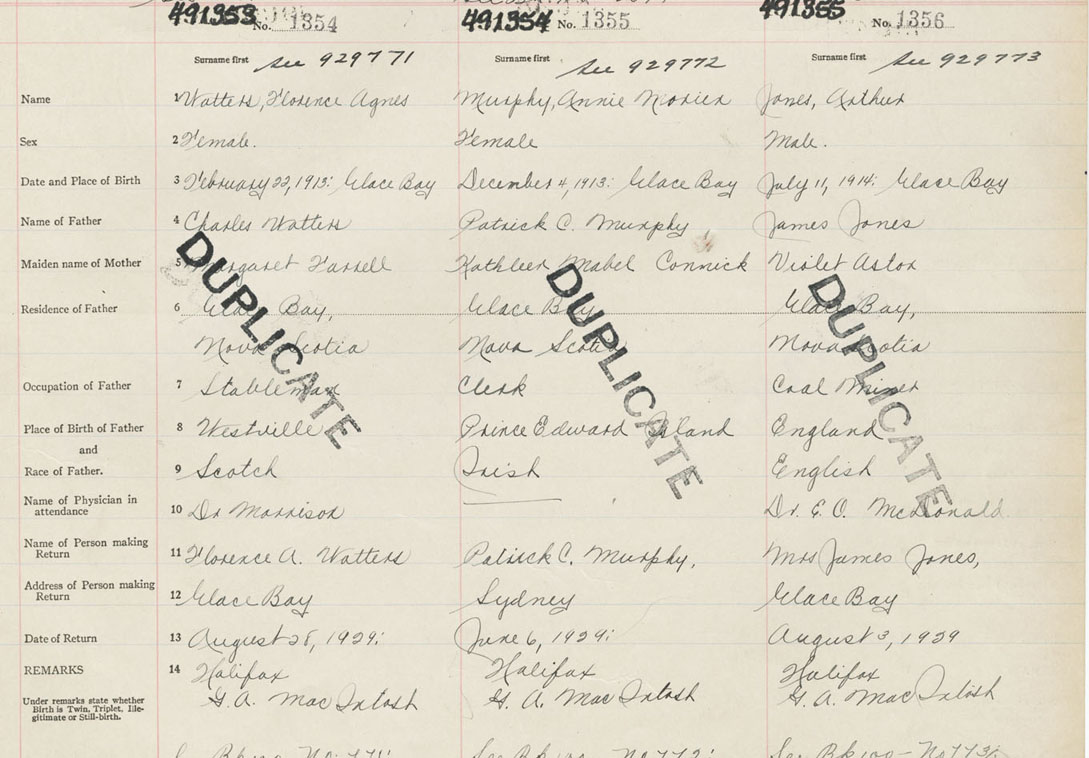 491353 No. 1354 491354 No. 1355 491355 No. 1356
Surname first See 929771 Surname first See 929772 Surname first See 929773
Name 1 Watters, Florence Agnes Murphy, Annie Jones, Arthur
Sex 2 Female. Female Male.
Date and Place of Birth 3 February 22, 1913: Glace Bay December 4, 1913: Glace Bay July 11, 1914: Glace Bay
Name of Father 4 Charles Watters Patrick C. Murphy James Jones
Maiden name of Mother 5 Margaret Farrell Kathleen Mabel Connick Violet Astor
Residence of Father 6 Glace Bay, Glace Bay Glace Bay,
Nova Scotia Nova Scotia Nova Scotia
Occupation of Father 7 Stableman Clerk Coal Miner
Place of Birth of Father 8 Westville Prince Edward Island England
and
Race of Father. 9 Scotch Irish English
Name of Physician in
attendance 10 Dr Morrison Dr. E. O. McDonald.
Name of Person making
Return 11 Florence A. Watters Patrick C. Murphy, Mrs James Jones,
Address of Person making
Return 12 Glace Bay Sydney Glace Bay
Date of Return 13 August 28, 1929: June 6, 1929: August 3, 1929
REMARKS 14 Halifax Halifax Halifax
G. A. MacIntosh G. A. MacIntosh G. A. MacIntosh
Under remarks state whether
Birth is Twin, Triplet, Ille-
gitimate or Still-birth.
DUPLICATE DUPLICATE DUPLICATE